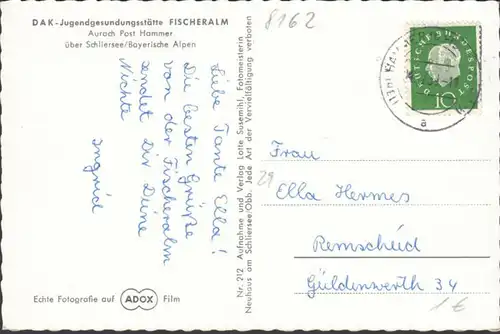 DAK-Jugendgesundungsstätte FISCHERALM
Aurach Post Hammer
über Schliersee/Bayerische Alpen
Liebe Tante Ella!
Die besten Grüße
von der Fischeralm
sendet Dir Deine
Nichte
Ingrid
Echte Fotografie auf ADOX Film
Nr. 212 Aufnahme und Verlag Lotte Susemihl, Fotomeisterin
Neuhaus am Schliersee/Obb. Jede Art der Vervielfältigung verboten
8162
DEUTSCHE BUNDESPOST
10
a
Frau
29
Ella Hermes
Remscheid
Güldenwerth 34
1€